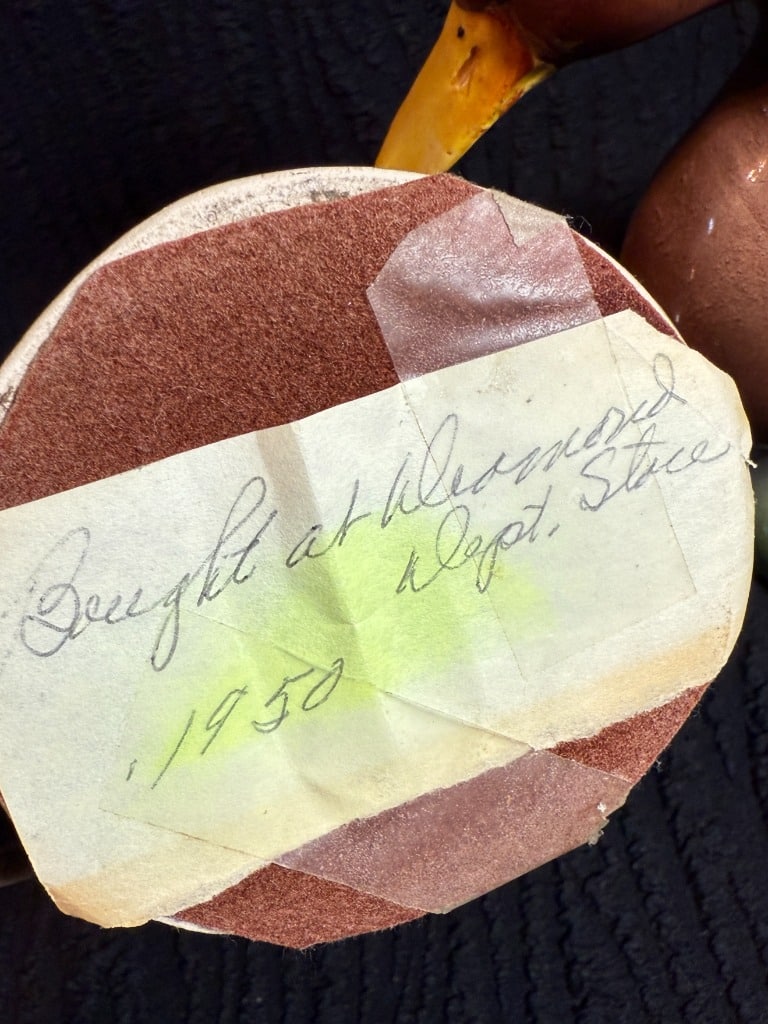 Bought at Diamond
Dept. Store
1950